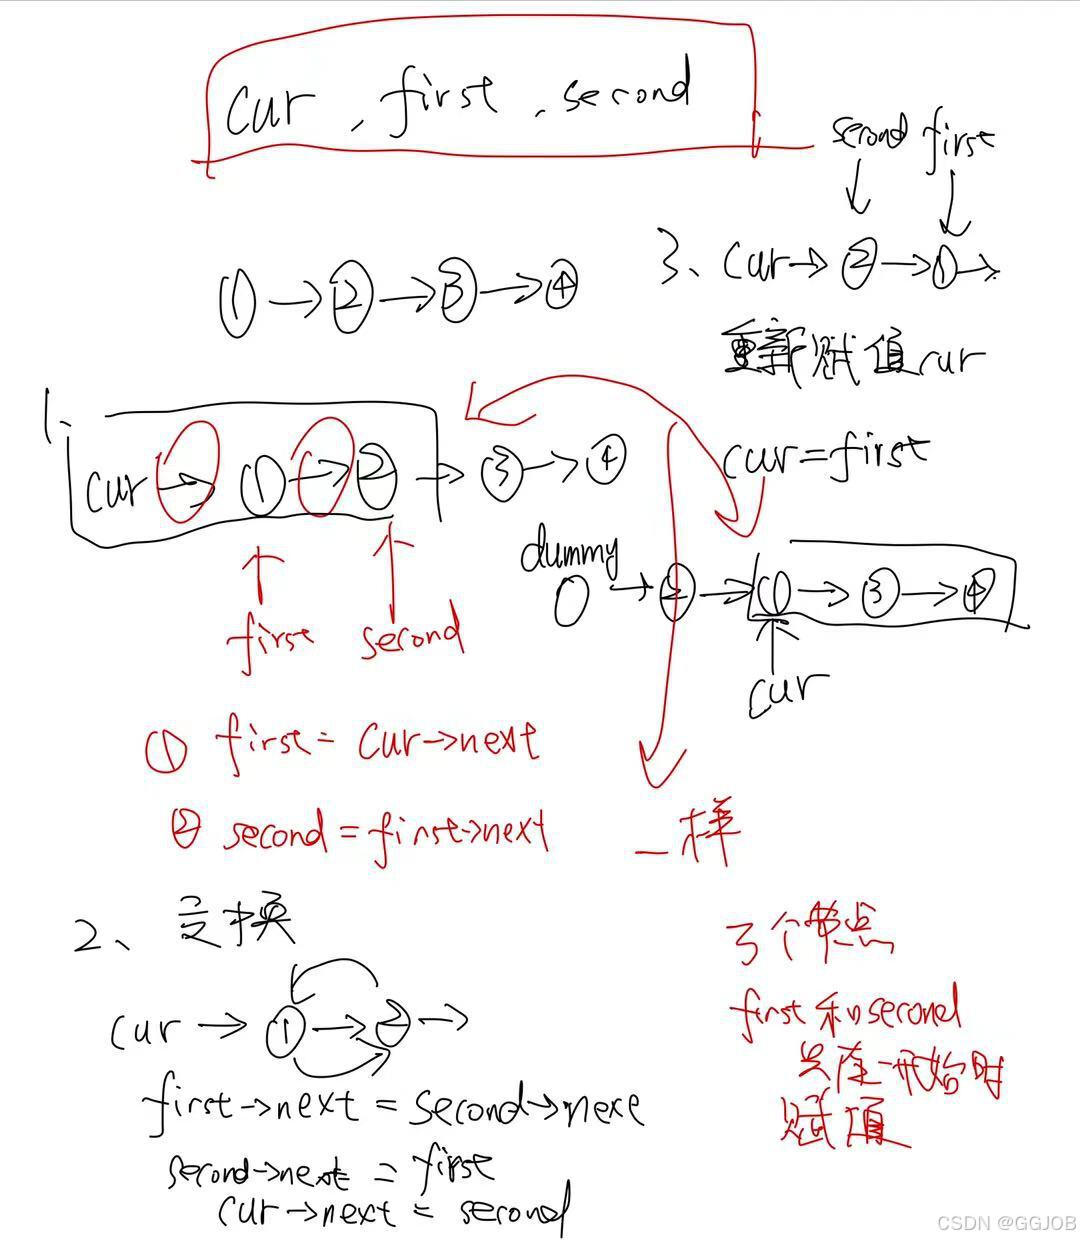 cur , first , second
second first
3、cur→②→①→
①→②→③→④
重新赋值cur
1、
cur→①→②→③→④
cur=first
dummy
0→②→①→③→④
first second
cur
① first= cur->next
② second=first->next
一样
2、交换
cur→①→②→
3个节点
first和second
只在一开始时
赋值
first->next = second->nexe
second->next = first
cur->next = second
CSDN @GGJOB